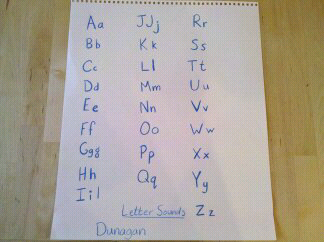 Aa
Bb
Cc
Dd
Ee
Ff
Ggg
Hh
Iil
JJj
Kk
Ll
Mm
Nn
Oo
Pp
Qq
Rr
Ss
Tt
Uu
Vv
Ww
Xx
Yy
Zz
Letter Sounds
Dunagan